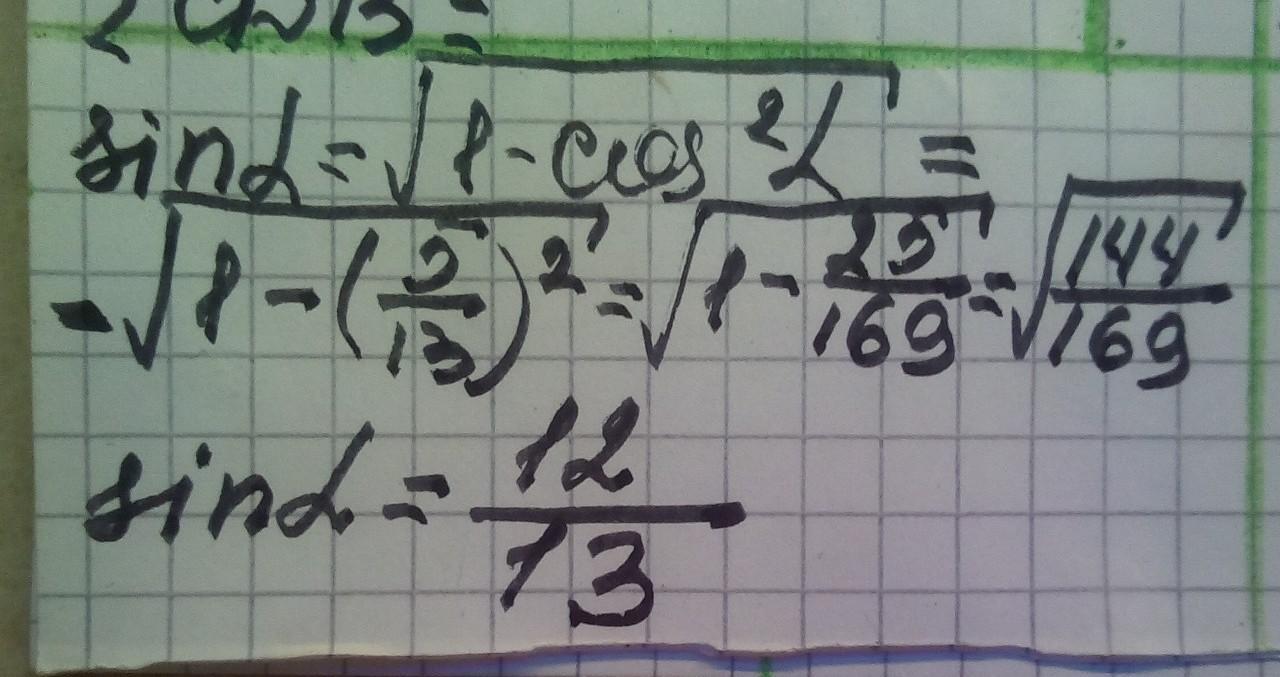 sinα = √(1 - cos²α) =
= √(1 - (5/13)²) = √(1 - 25/169) = √(144/169)
sinα = 12/13